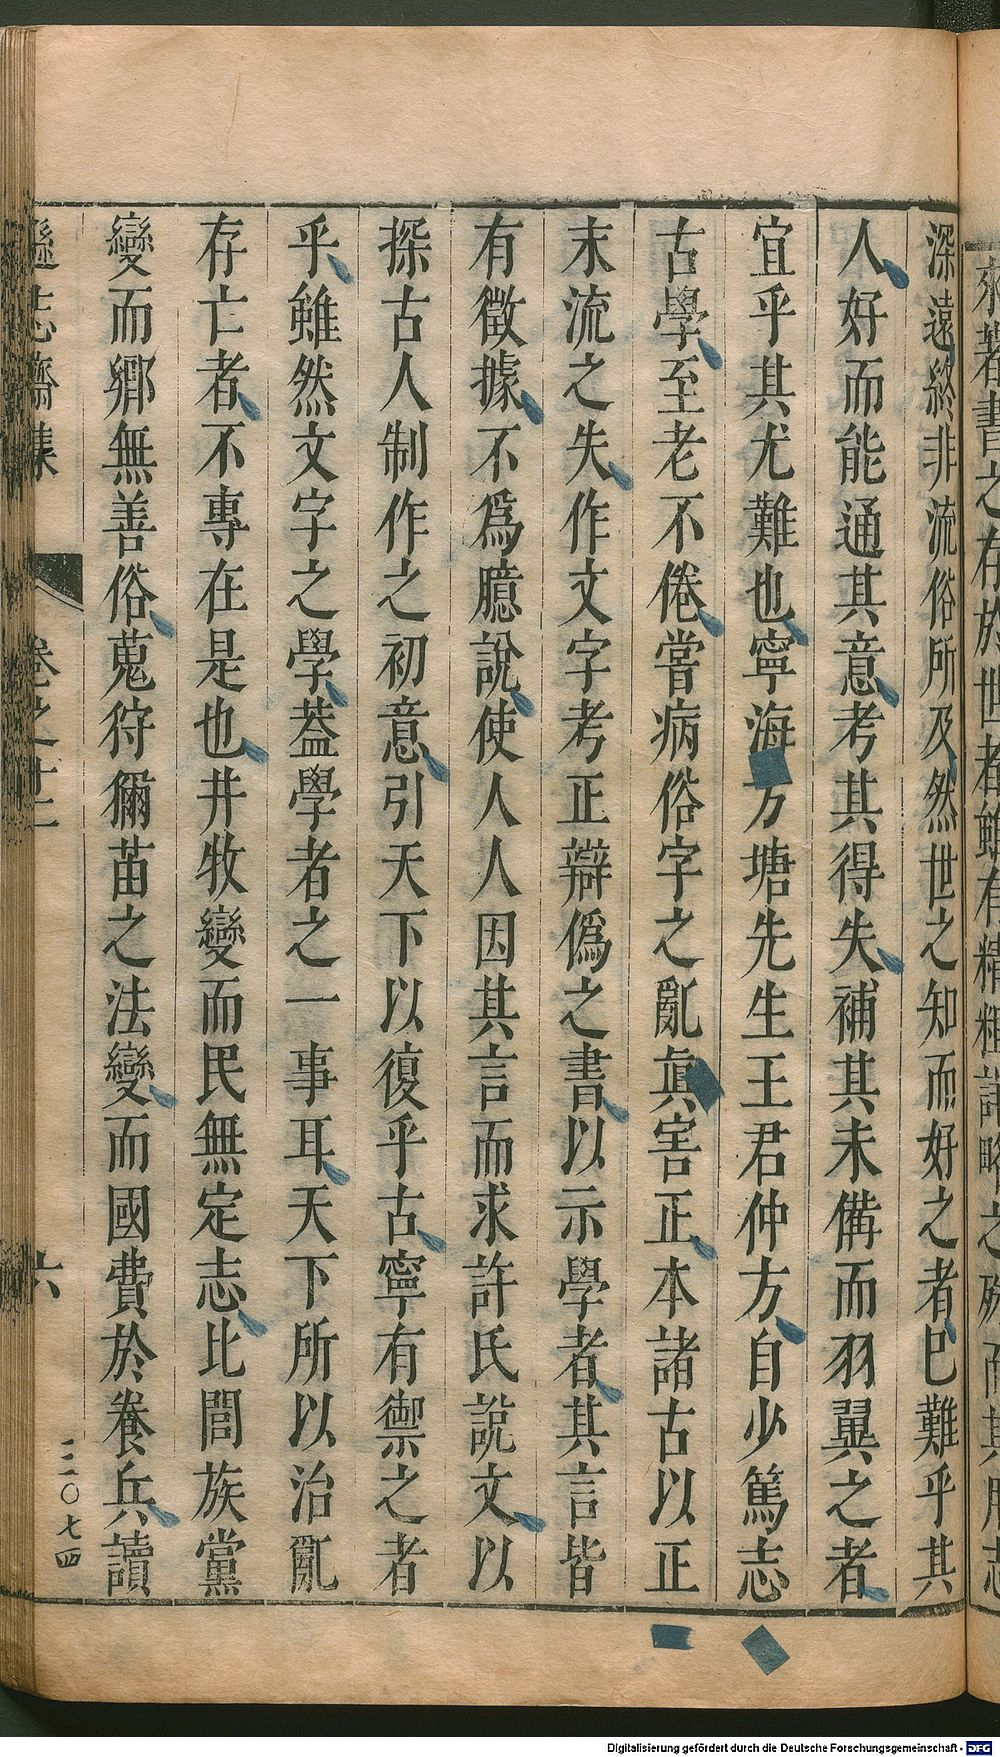 深遠終非流俗所及然世之知而好之者已難乎其
人好而能通其意考其得失補其未備而羽翼之者
宜乎其尤難也寧海方塘先生王君仲方自少篤志
古學至老不倦嘗病俗字之亂眞害正本諸古以正
末流之失作文字考正辯僞之書以示學者其言皆
有徵據不爲臆說使人人因其言而求許氏說文以
探古人制作之初意引天下以復乎古寧有禦之者
乎雖然文字之學葢學者之一事耳天下所以治亂
存亡者不專在是也井牧變而民無定志比閭族黨
變而鄉無善俗蒐狩獮苗之法變而國費於養兵讀
遜志齋集 卷之十二 六
二二〇七四
Digitalisierung gefördert durch die Deutsche Forschungsgemeinschaft - DFG